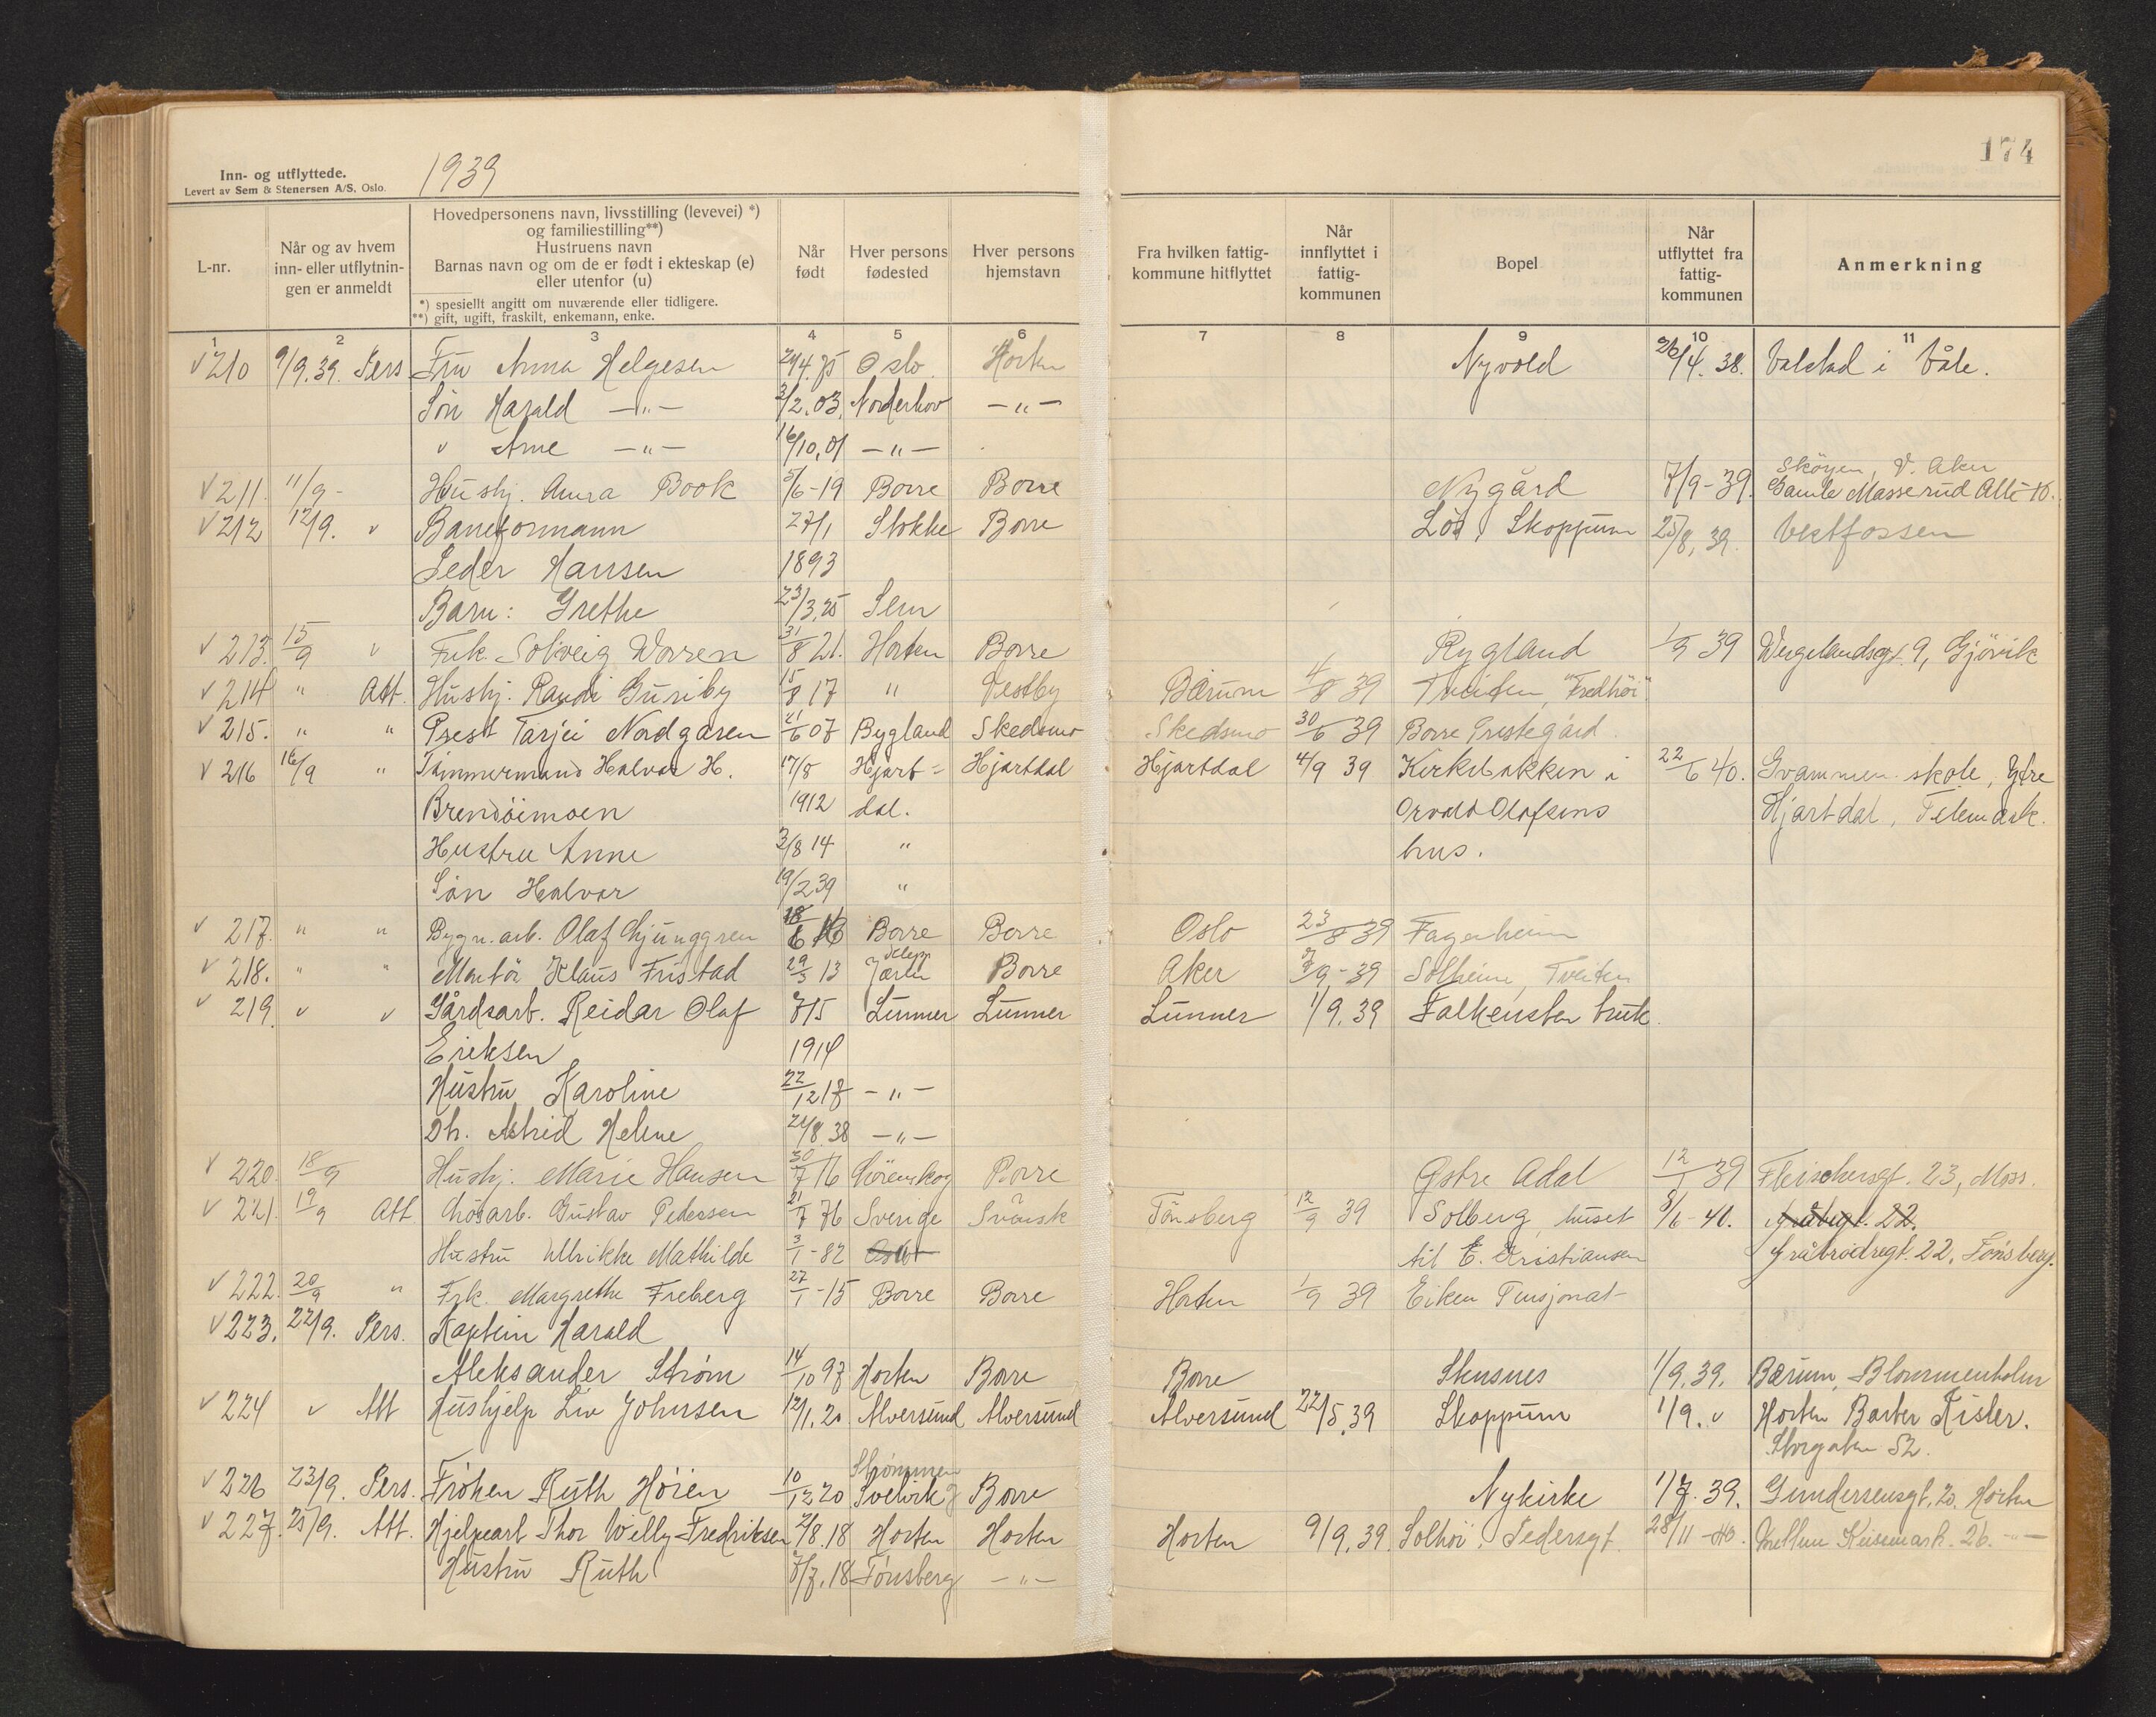 174
Inn- og utflyttede.
Levert av Sem & Stenersen A/S, Oslo.
1939
L-nr.
Når og av hvem inn- eller utflytnin-gen er anmeldt
Hovedpersonens navn, livsstilling (levevei) *)
og familiestilling**)
Hustruens navn
Barnas navn og om de er født i ekteskap (e)
eller utenfor (u)
*) spesiellt angitt om nuværende eller tidligere.
**) gift, ugift, fraskilt, enkemann, enke.
Når født
Hver persons fødested
Hver persons hjemstavn
Fra hvilken fattig-kommune hitflyttet
Når innflyttet i fattig-kommunen
Bopel
Når utflyttet fra fattig-kommunen
Anmerkning
1 2 3 4 5 6 7 8 9 10 11
√ 210 9/9.39. Pers Fru Anna Helgesen 24/4.75 Oslo. Horten Nyvold 26/4.38. Valstad i Våle.
Sön Harald —"— 2/2.03. Norderhov —"—
" Arne —"— 16/10.01 —"—
√ 211. 11/9 - Hushj. Anna Book 5/6-19 Borre Borre Nygård 7/9-39. Sköyen, V. Aker
Gamle Masserud Allé 10.
√ 212 12/9. " Baneformann 27/1 Stokke Borre Skoppum 25/8.39. Vestfossen
Peder Hansen 1893
Barn: Grethe 23/3.25 Sem
√ 213. 15/9 " Frk. Solveig Worren 31/8 21. Horten Borre Rygland 1/9 39 Wergelandsgt. 9, Gjövik
√ 214 " Att. Hushj. Randi Guriby 15/8 17 " Vestby Bærum 4/8 39 Tveiten, "Fredhöi"
√ 215. " " Prest Tarjei Nordgaren 21/6 07 Bygland Skedsmo Skedsmo 30/6 39 Borre Prestegård.
√ 216 16/9 " Tömmermand Halvor H. 17/8 Hjart= Hjartdal Hjartdal 4/9 39 Kirkebakken i 22/6 40. Gvammen skole, Ytre
Brendöimoen 1912 dal. Orvald Olafsens Hjartdal, Telemark.
Hustru Anne 2/8 14 " hus.
Sön Halvor 19/2 39 "
√ 217. " " Bygn. arb. Olaf Ljunggren 18/6 16 Borre Borre Oslo 23/8 39 Fagerheim
√ 218. " " Montör Klaus Fristad 29/3 13 Klepp Jæren Borre Aker 7/9-39 Solheim, Tveiten
√ 219. " " Gårdsarb. Reidar Olaf 7/5 Lunner Lunner Lunner 1/9.39 Falkensten bruk.
Eriksen 1914
Hustru Karoline 22/12 17 —"—
Dtr. Astrid Helene 24/8.38 —"—
√ 220. 18/9 Hushj. Marie Hansen 30/7 16 Lörenskog Borre Østre Adal 12/1 39 Fleischersgt. 23, Moss.
√ 221. 19/9 Att. Lösarb. Gustav Pedersen 21/7 76 Sverige Svensk Tönsberg 12/9 39 Solberg, huset 8/6-40. 22.
Hustru Ullrikke Mathilde 3/1-82 Oslo til E. Kristiansen Gråbrödregt. 22, Tönsberg.
√ 222. 20/9 " Frk. Margrethe Freberg 27/1-15 Borre Borre Horten 1/9 39 Eiken Pensjonat
√ 223. 22/9. Pers. Kaptein Harald
Aleksander Strøm 14/10 97 Horten Borre Borre Stensnes 1/9.39. Bærum, Blommenholm
√ 224 " Att Hushjelp Liv Johnsen 12/1.20 Alversund Alversund Alversund 22/5.39 Skoppum 1/9. " Horten Barber Kisler.
Storgaten 52.
√ 226 23/9. Pers. Frøken Ruth Høien 10/12 20 Strømmen Svelvik Borre Nykirke 1/7.39. Gundersensgt. 20. Horten
√ 227. 25/9. Att. Hjelpearb Thor Willy Fredriksen 2/8.18 Horten Horten Horten 9/9.39. Solhöi, Pedersgt. 28/11-40. Mellem Keisemark. 26. —"—
Hustru Ruth 7/7.18 Tønsberg —"—